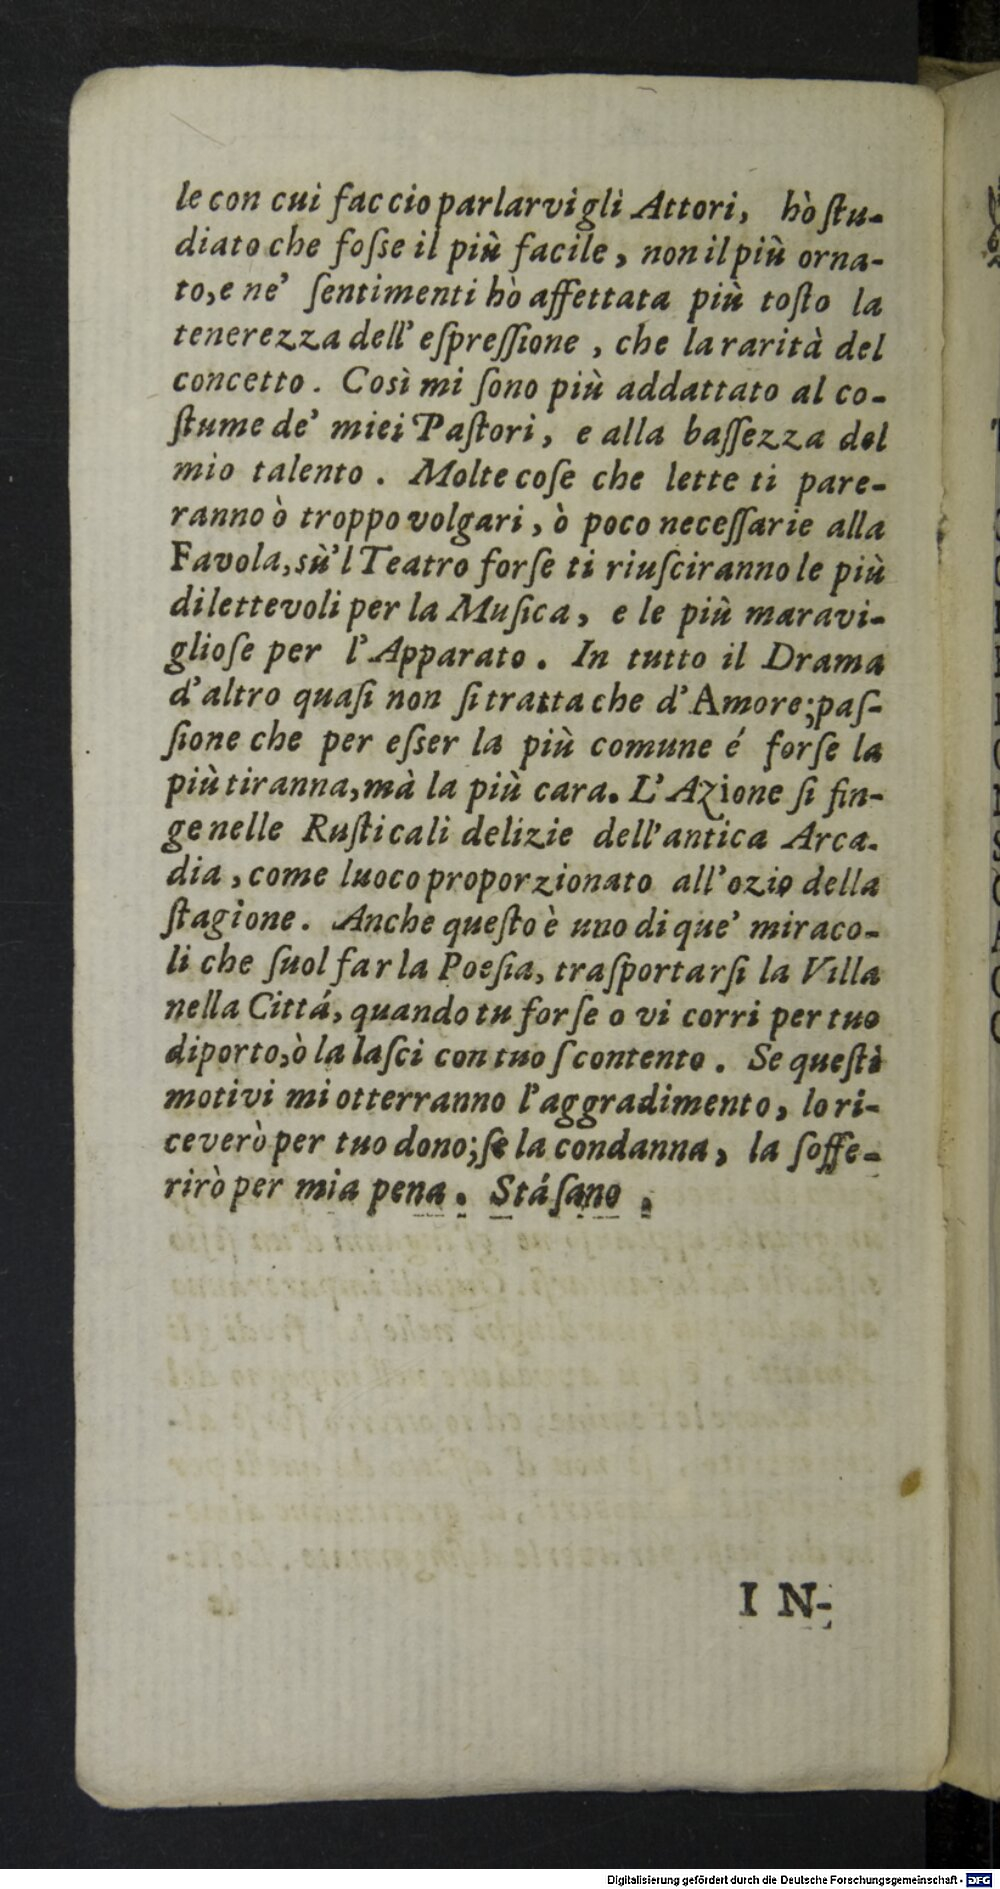 le con cui faccio parlarvi gli Attori, hò ſtu-
diato che foſse il più facile, non il più orna-
to, e ne' ſentimenti hò affettata più toſto la
tenerezza dell' eſpreſſione, che la rarità del
concetto. Così mi ſono più addattato al co-
ſtume de' miei Paſtori, e alla baſſezza del
mio talento. Molte coſe che lette ti pare-
ranno ò troppo volgari, ò poco neceſſarie alla
Favola, sù'l Teatro forſe ti riuſciranno le più
dilettevoli per la Muſica, e le più maravi-
glioſe per l'Apparato. In tutto il Drama
d'altro quaſi non ſi tratta che d'Amore; paſ-
ſione che per eſser la più comune é forſe la
più tiranna, mà la più cara. L'Azione ſi fin-
ge nelle Ruſticali delizie dell'antica Arca-
dia, come luoco proporzionato all'ozio della
ſtagione. Anche queſto è uno di que' miraco-
li che ſuol far la Poeſia, traſportarſi la Villa
nella Cittá, quando tu forſe o vi corri per tuo
diporto, ò la laſci con tuo ſcontento. Se queſti
motivi mi otterranno l'aggradimento, lo ri-
ceverò per tuo dono; ſe la condanna, la ſoffe-
rirò per mia pena. Stá ſano.
IN-
Digitalisierung gefördert durch die Deutsche Forschungsgemeinschaft - DFG